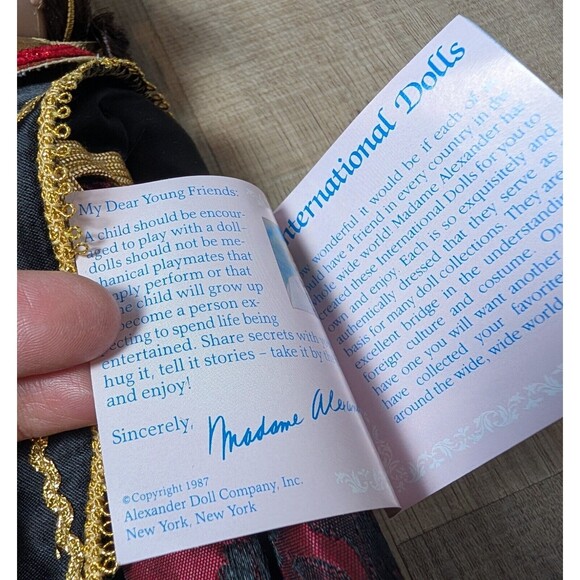 My Dear Young Friends:
A child should be encour-
aged to play with a doll-
dolls should not be me-
hanical playmates that
perform or that
child will grow up
become a person ex-
ecting to spend life being
entertained. Share secrets with
hug it, tell it stories – take it by th
and enjoy!
Sincerely,
Madame Alexan
©Copyright 1987
Alexander Doll Company, Inc.
New York, New York
International Dolls
wonderful it would be if each of
uld have a friend in every country in the
whole wide world! Madame Alexander has
created these International Dolls for you to
own and enjoy. Each is so exquisitely and
authentically dressed that they serve as
basis for many doll collections. They are
excellent bridge in the understandin
foreign culture and costume. On
have one you will want another
have collected your favorite
around the wide, wide world